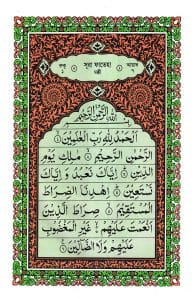 সূরা ফাতেহা
রুকু
১
মক্কী
আয়াত
৭
بِسْمِ اللهِ الرَّحْمٰنِ الرَّحِيْمِ
اَلْحَمْدُ لِلّٰهِ رَبِّ الْعٰلَمِيْنَ
الرَّحْمٰنِ الرَّحِيْمِ مٰلِكِ يَوْمِ
الدِّيْنِ اِيَّاكَ نَعْبُدُ وَ اِيَّاكَ
نَسْتَعِيْنُ اِهْدِنَا الصِّرَاطَ
الْمُسْتَقِيْمَ صِرَاطَ الَّذِيْنَ
اَنْعَمْتَ عَلَيْهِمْ غَيْرِ الْمَغْضُوْبِ
عَلَيْهِمْ وَلَا الضَّآلِّيْنَ